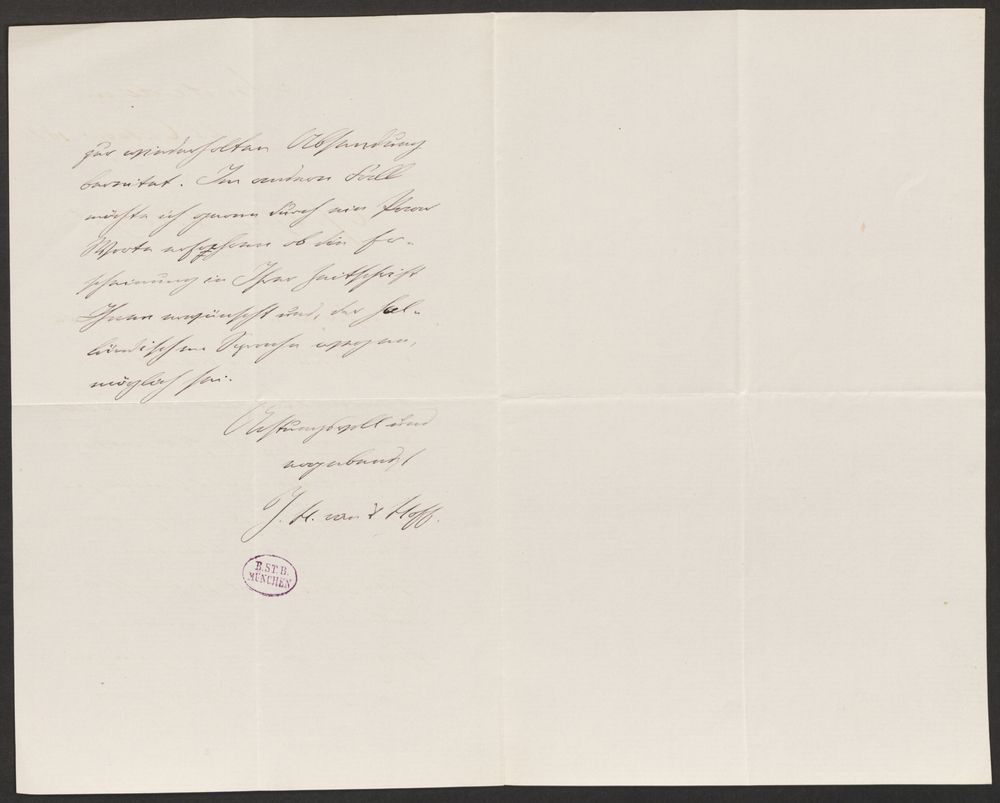 zur wiederholten Absendung
bereitet. Im andern Fall
möchte ich gerne durch ein Paar
Worte ersehen ob die Er-
scheinung in Ihrer Zeitschrift
Ihnen erwünscht und, der hol-
ländischen Sprache wegen,
möglich sei.
Achtungsvoll und
ergebenst
J. H. van 't Hoff.
B. ST. B.
MÜNCHEN